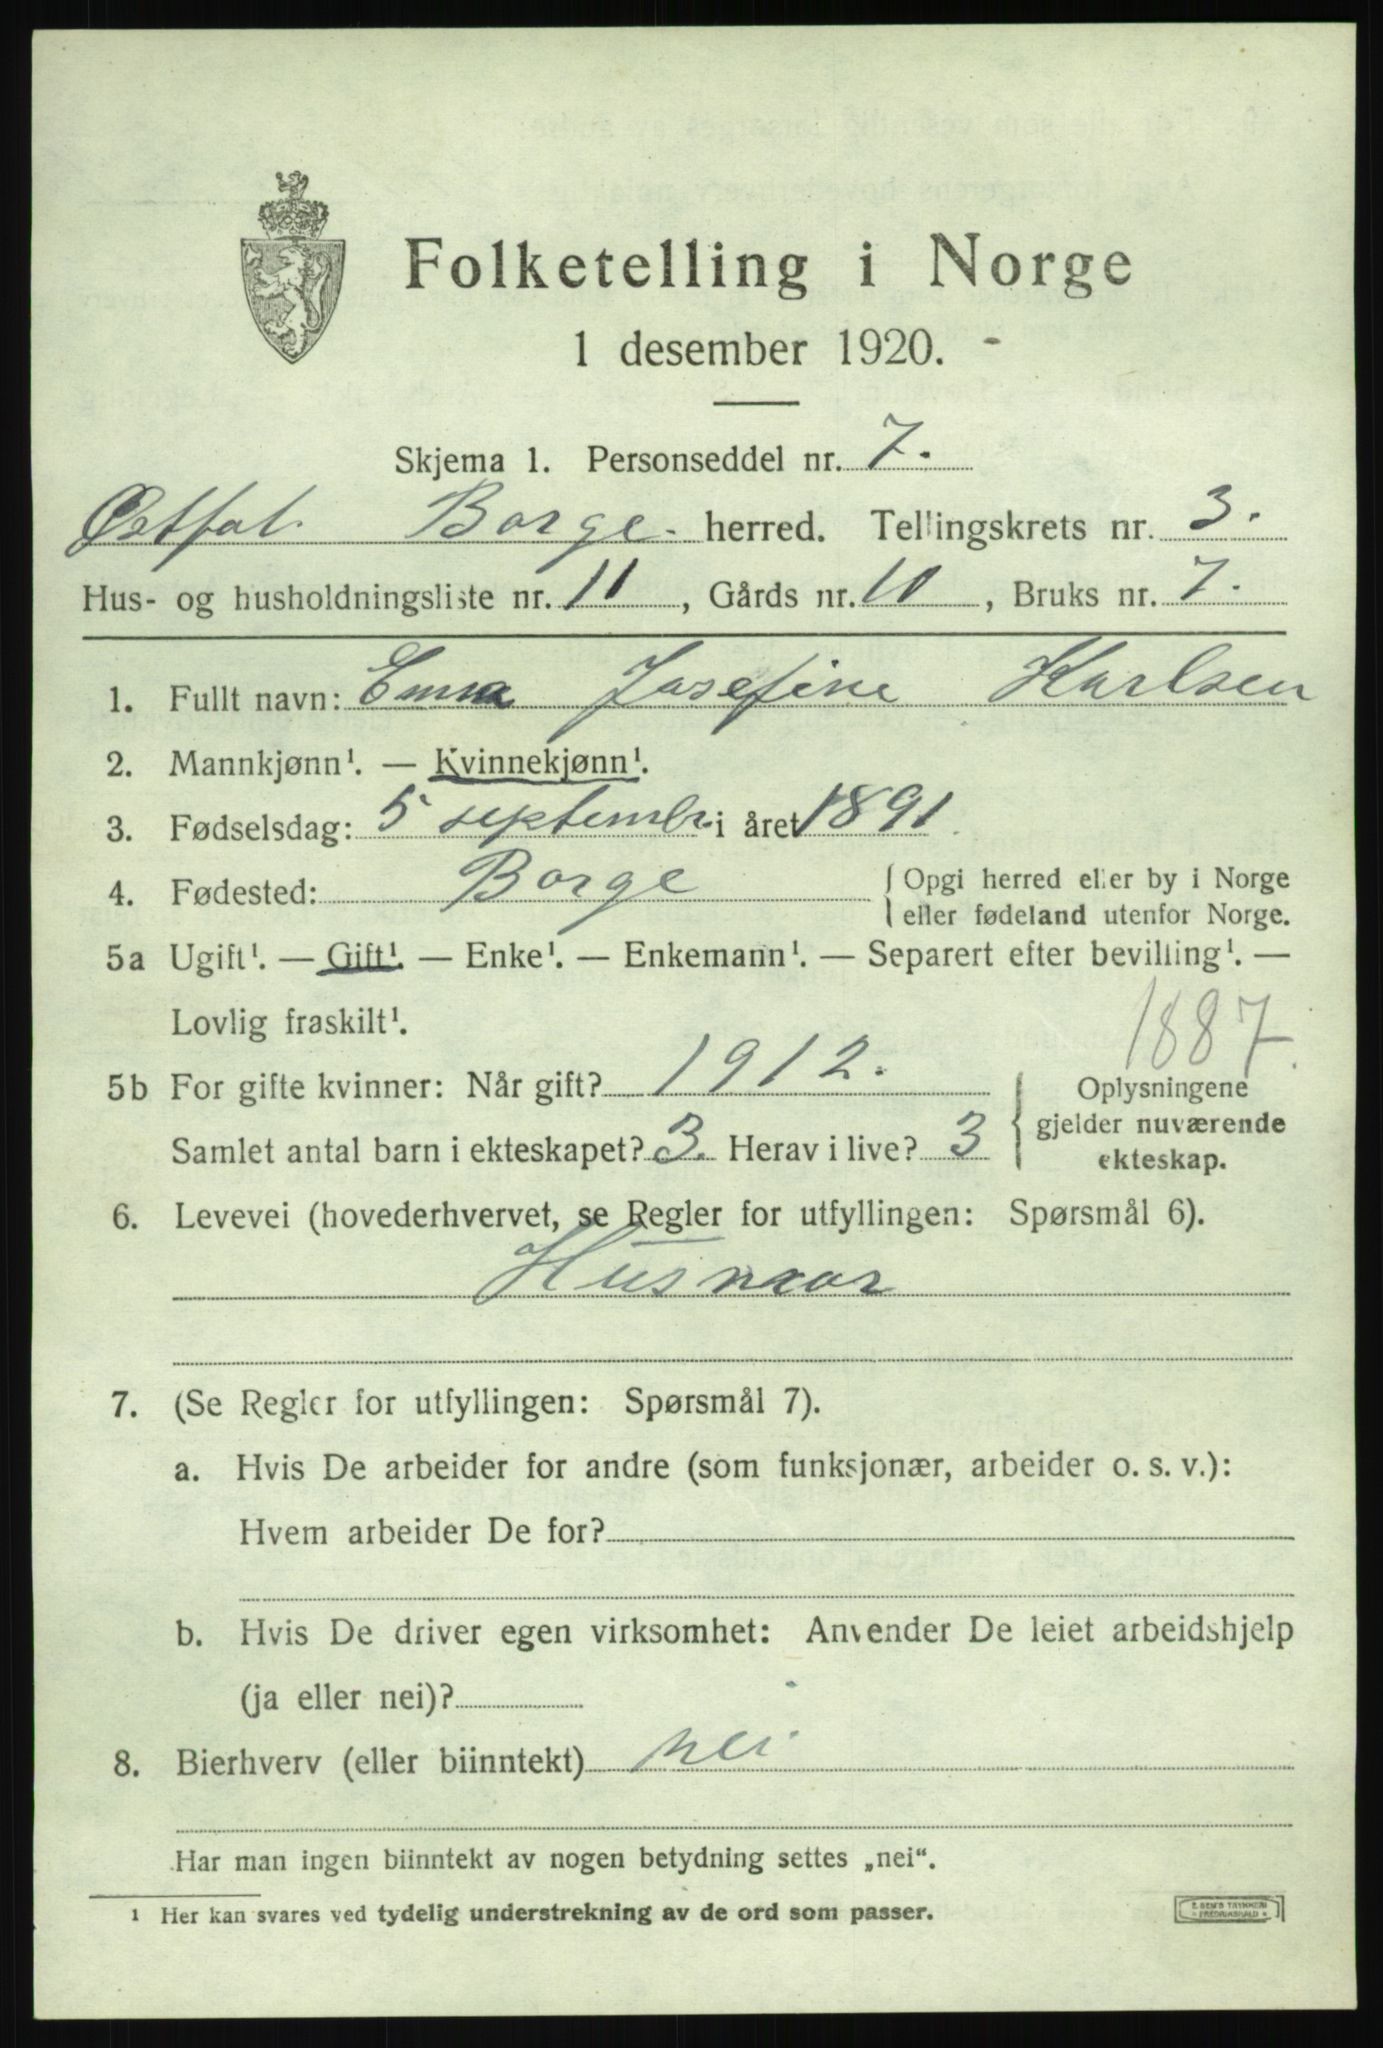 Folketelling i Norge
1 desember 1920.
Skjema 1. Personseddel nr. 7.
Østfol. Borge herred. Tellingskrets nr. 3.
Hus- og husholdningsliste nr. 11, Gårds nr. 10, Bruks nr. 7.
1. Fullt navn: Emma Josefine Karlsen
2. Mannkjønn¹. — Kvinnekjønn¹.
3. Fødselsdag: 5 septembr. i året 1891.
4. Fødested: Borge { Opgi herred eller by i Norge
eller fødeland utenfor Norge.
5a Ugift¹. — Gift¹. — Enke¹. — Enkemann¹. — Separert efter bevilling¹. —
Lovlig fraskilt¹.
1887.
5b For gifte kvinner: Når gift? 1912. { Oplysningene
gjelder nuværende
Samlet antal barn i ekteskapet? 3. Herav i live? 3
ekteskap.
6. Levevei (hovederhvervet, se Regler for utfyllingen: Spørsmål 6).
Husmoor
7. (Se Regler for utfyllingen: Spørsmål 7).
a. Hvis De arbeider for andre (som funksjonær, arbeider o. s. v.):
Hvem arbeider De for?
b. Hvis De driver egen virksomhet: Anvender De leiet arbeidshjelp
(ja eller nei)?
8. Bierhverv (eller biinntekt) nei
Har man ingen biinntekt av nogen betydning settes „nei“.
¹ Her kan svares ved tydelig understrekning av de ord som passer.